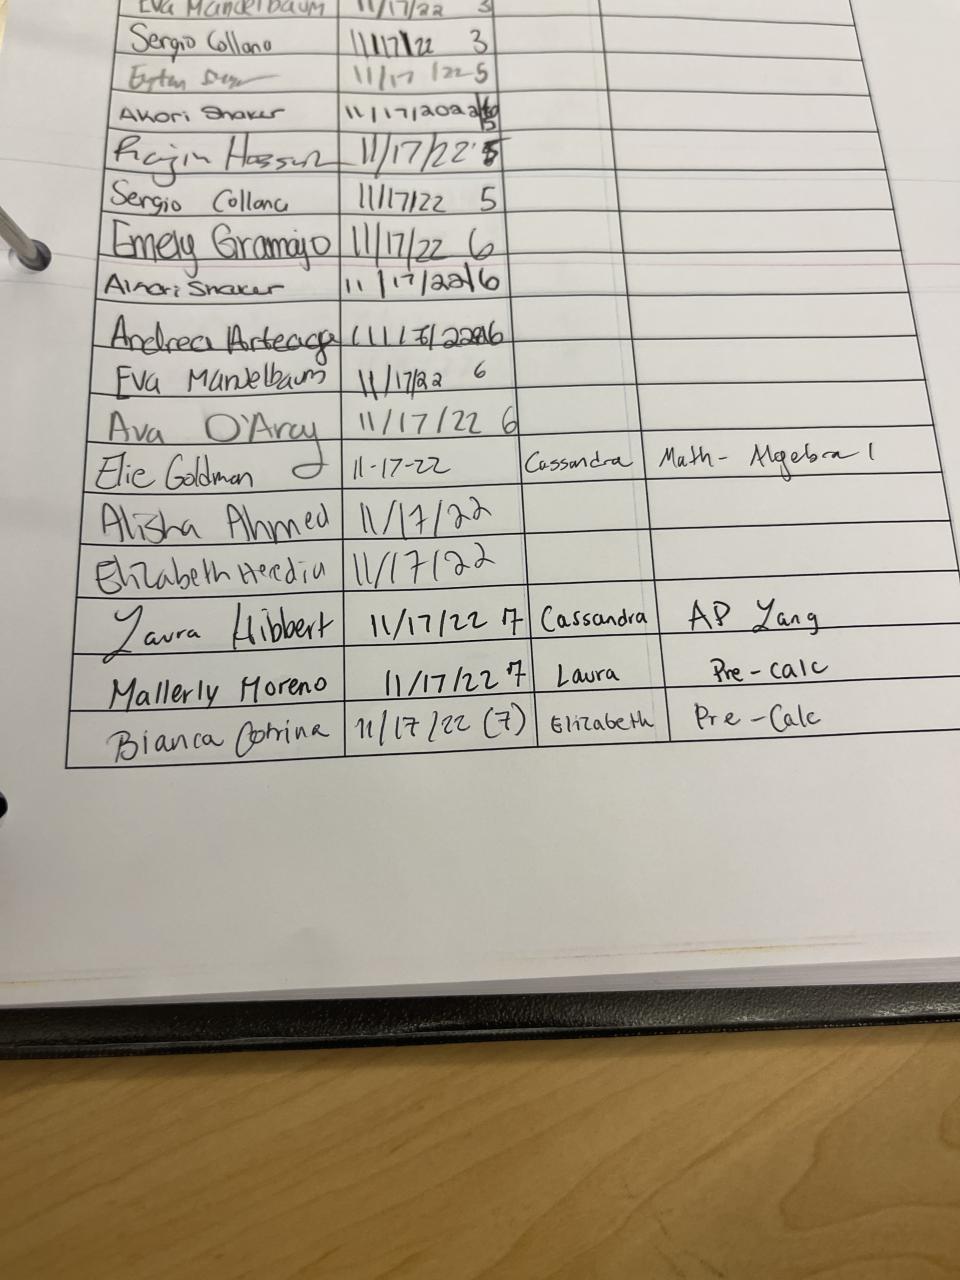 Eva Mandelbaum 11/17/22 3
Sergio Collana 11/17/22 3
11/17/22 5
Akori Shaker 11/17/2022
11/17/22 5
Sergio Collana 11/17/22 5
Emely Gramajo 11/17/22 6
Akori Shaker 11/17/22 6
Andrea Arteaga 11/17/22 6
Eva Mandelbaum 11/17/22 6
Ava O'Arcy 11/17/22 6
Elie Goldman 11-17-22 Cassandra Math- Algebra 1
Alisha Ahmed 11/17/22
Elizabeth Heredia 11/17/22
Laura Hibbert 11/17/22 7 Cassandra AP Lang
Mallerly Moreno 11/17/22 7 Laura Pre-calc
Bianca Cotrina 11/17/22 (7) Elizabeth Pre-Calc